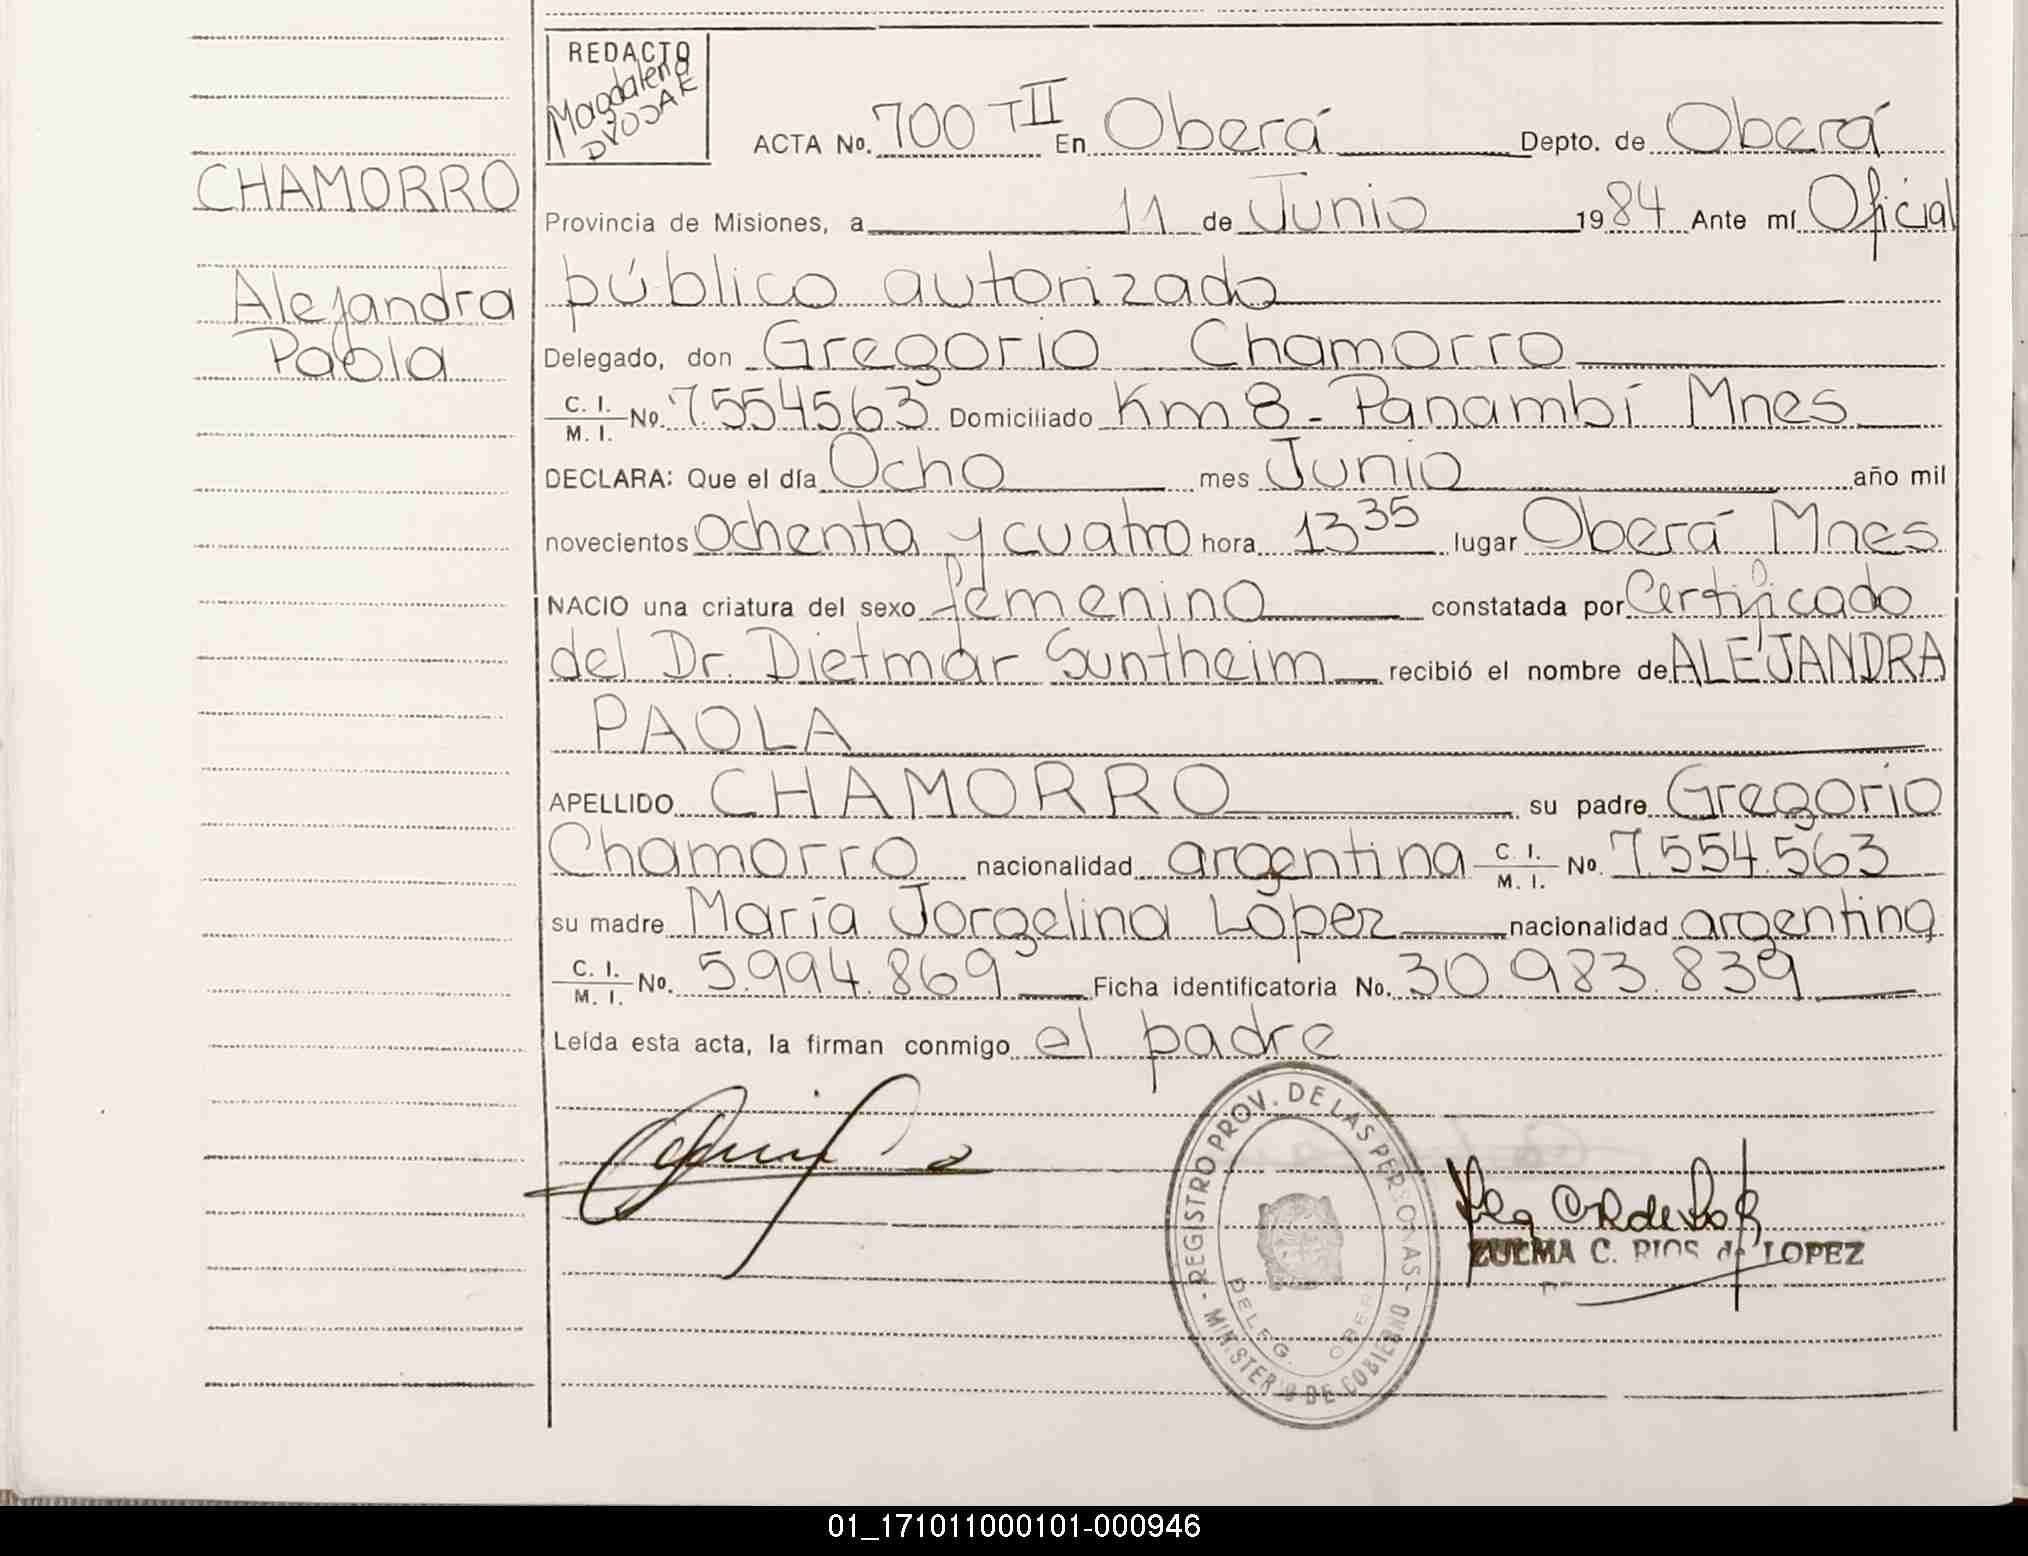 REDACTO
Magdalena
DVOJAK
ACTA No. 700 TII En Oberá Depto. de Oberá
CHAMORRO
Provincia de Misiones, a 11 de Junio 1984 Ante mí Oficial
público autorizado
Alejandra
Paola
Delegado, don Gregorio Chamorro
C. I.
M. I. No. 7.554563 Domiciliado Km 8 - Panambí Mnes
DECLARA: Que el día Ocho mes Junio año mil
novecientos Ochenta y cuatro hora 13 35 lugar Oberá Mnes
NACIO una criatura del sexo femenino constatada por Certificado
del Dr. Dietmar Suntheim recibió el nombre de ALEJANDRA
PAOLA
APELLIDO CHAMORRO su padre Gregorio
Chamorro nacionalidad argentina C. I. M. I. No. 7.554.563
su madre María Jorgelina López nacionalidad argentina
C. I. M. I. No. 5.994.869 Ficha identificatoria No. 30 983.839
Leída esta acta, la firman conmigo el padre
REGISTRO PROV. DE LAS PERSONAS
MINISTERIO DE GOBIERNO
DELEG. OBERA
ZULMA C. RIOS de LOPEZ
01_171011000101-000946